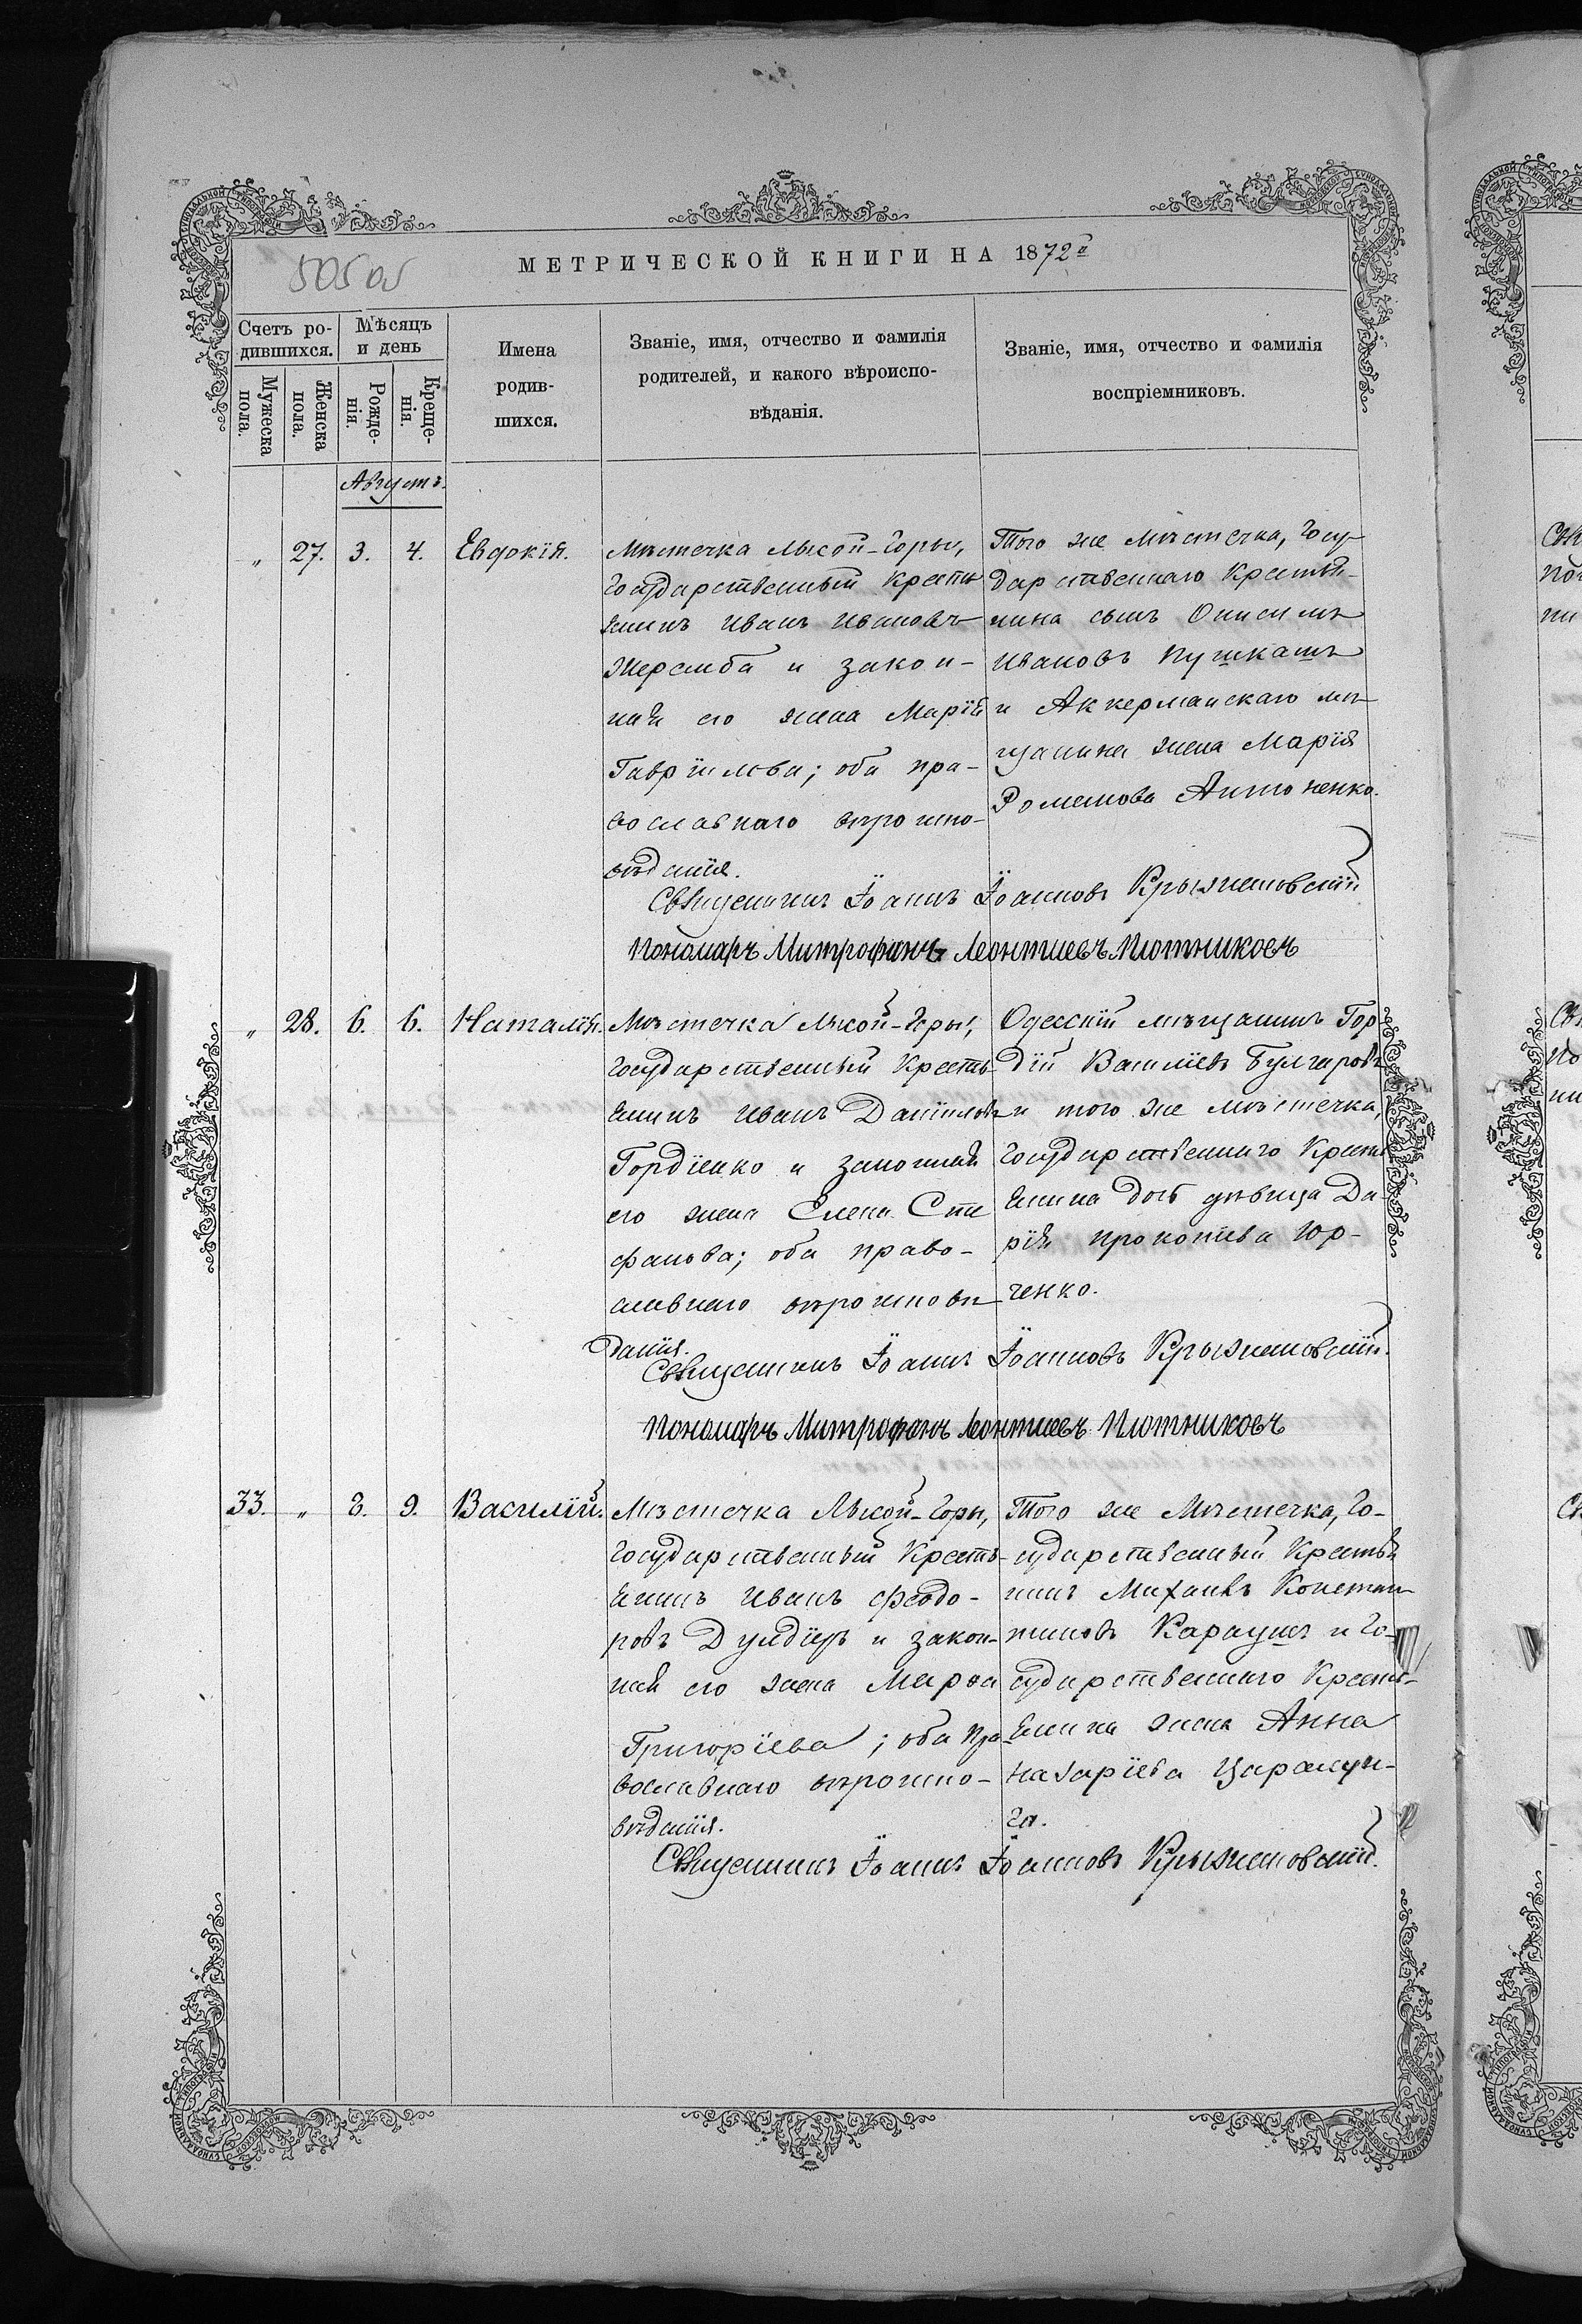 505 об
МЕТРИЧЕСКОЙ КНИГИ НА 1872й
Счетъ ро-
дившихся.
Мѣсяцъ
и день
Мужеска
пола.
Женска
пола.
Рожде-
нія.
Креще-
нія.
Имена
родив-
шихся.
Званіе, имя, отчество и фамилія
родителей, и какого вѣроиспо-
вѣданія.
Званіе, имя, отчество и фамилія
воспріемниковъ.
Августъ.
„ 27. 3. 4. Евдокія.
Мѣстечка Лысой-Горы,
государственный кресть
янинъ Иванъ Ивановъ
Жеремба и закон-
ная его жена Марія
Гавріилова; оба пра-
вославнаго вѣроиспо-
вѣданія.
Того же мѣстечка, Госу-
дарственнаго крестья-
нина сынъ Онисимъ
Ивановъ Пушкашъ
и Аккерманскаго мѣ-
щанина жена Марія
Романова Антоненко.
Священникъ Іоаннъ Іоанновъ Крыжановскій
Пономарь Митрофанъ Леонтиевъ Плотниковъ
„ 28. 6. 6. Наталія.
Мѣстечка Лысой-Горы,
государственный кресть-
янинъ Иванъ Даніиловъ
Гордіенко и законная
его жена Елена Сте
фанова; оба право-
славнаго вѣроисповѣ
данія.
Одесскій мѣщанинъ Гор-
дій Василіевъ Булгаровъ
и того же мѣстечка,
государственнаго кресть
янина дочь дѣвица Да-
рія Прокопіева Юр-
ченко.
Священникъ Іоаннъ Іоанновъ Крыжановскій.
Пономарь Митрофанъ Леонтиевъ Плотниковъ
33. „ 8. 9. Василій.
Мѣстечка Лысой-Горы,
государственный кресть-
янинъ Иванъ Феодо-
ровъ Дулдіеръ и закон-
ная его жена Марѳа
Григоріева; оба пра
вославнаго вѣроиспо-
вѣданія.
Того же мѣстечка, го-
сударственный крестья
нинъ Михаилъ Констан
тиновъ Караушъ и го-
сударственнаго кресть-
янина жена Анна
Назаріева Царалун-
га.
Священникъ Іоаннъ Іоанновъ Крыжановскій.